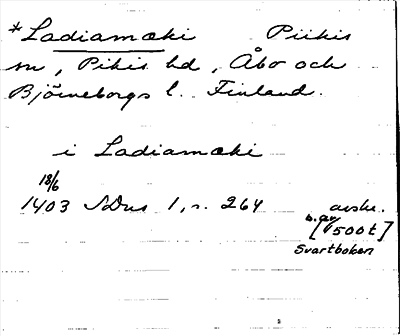 *Ladiamæki Piikis
sn, Pikis hd, Åbo och
Björneborgs l. Finland.
i Ladiamæki
18/6
1403 SDns 1, s. 264 avskr.
b. av
[1500 t]
Svartboken